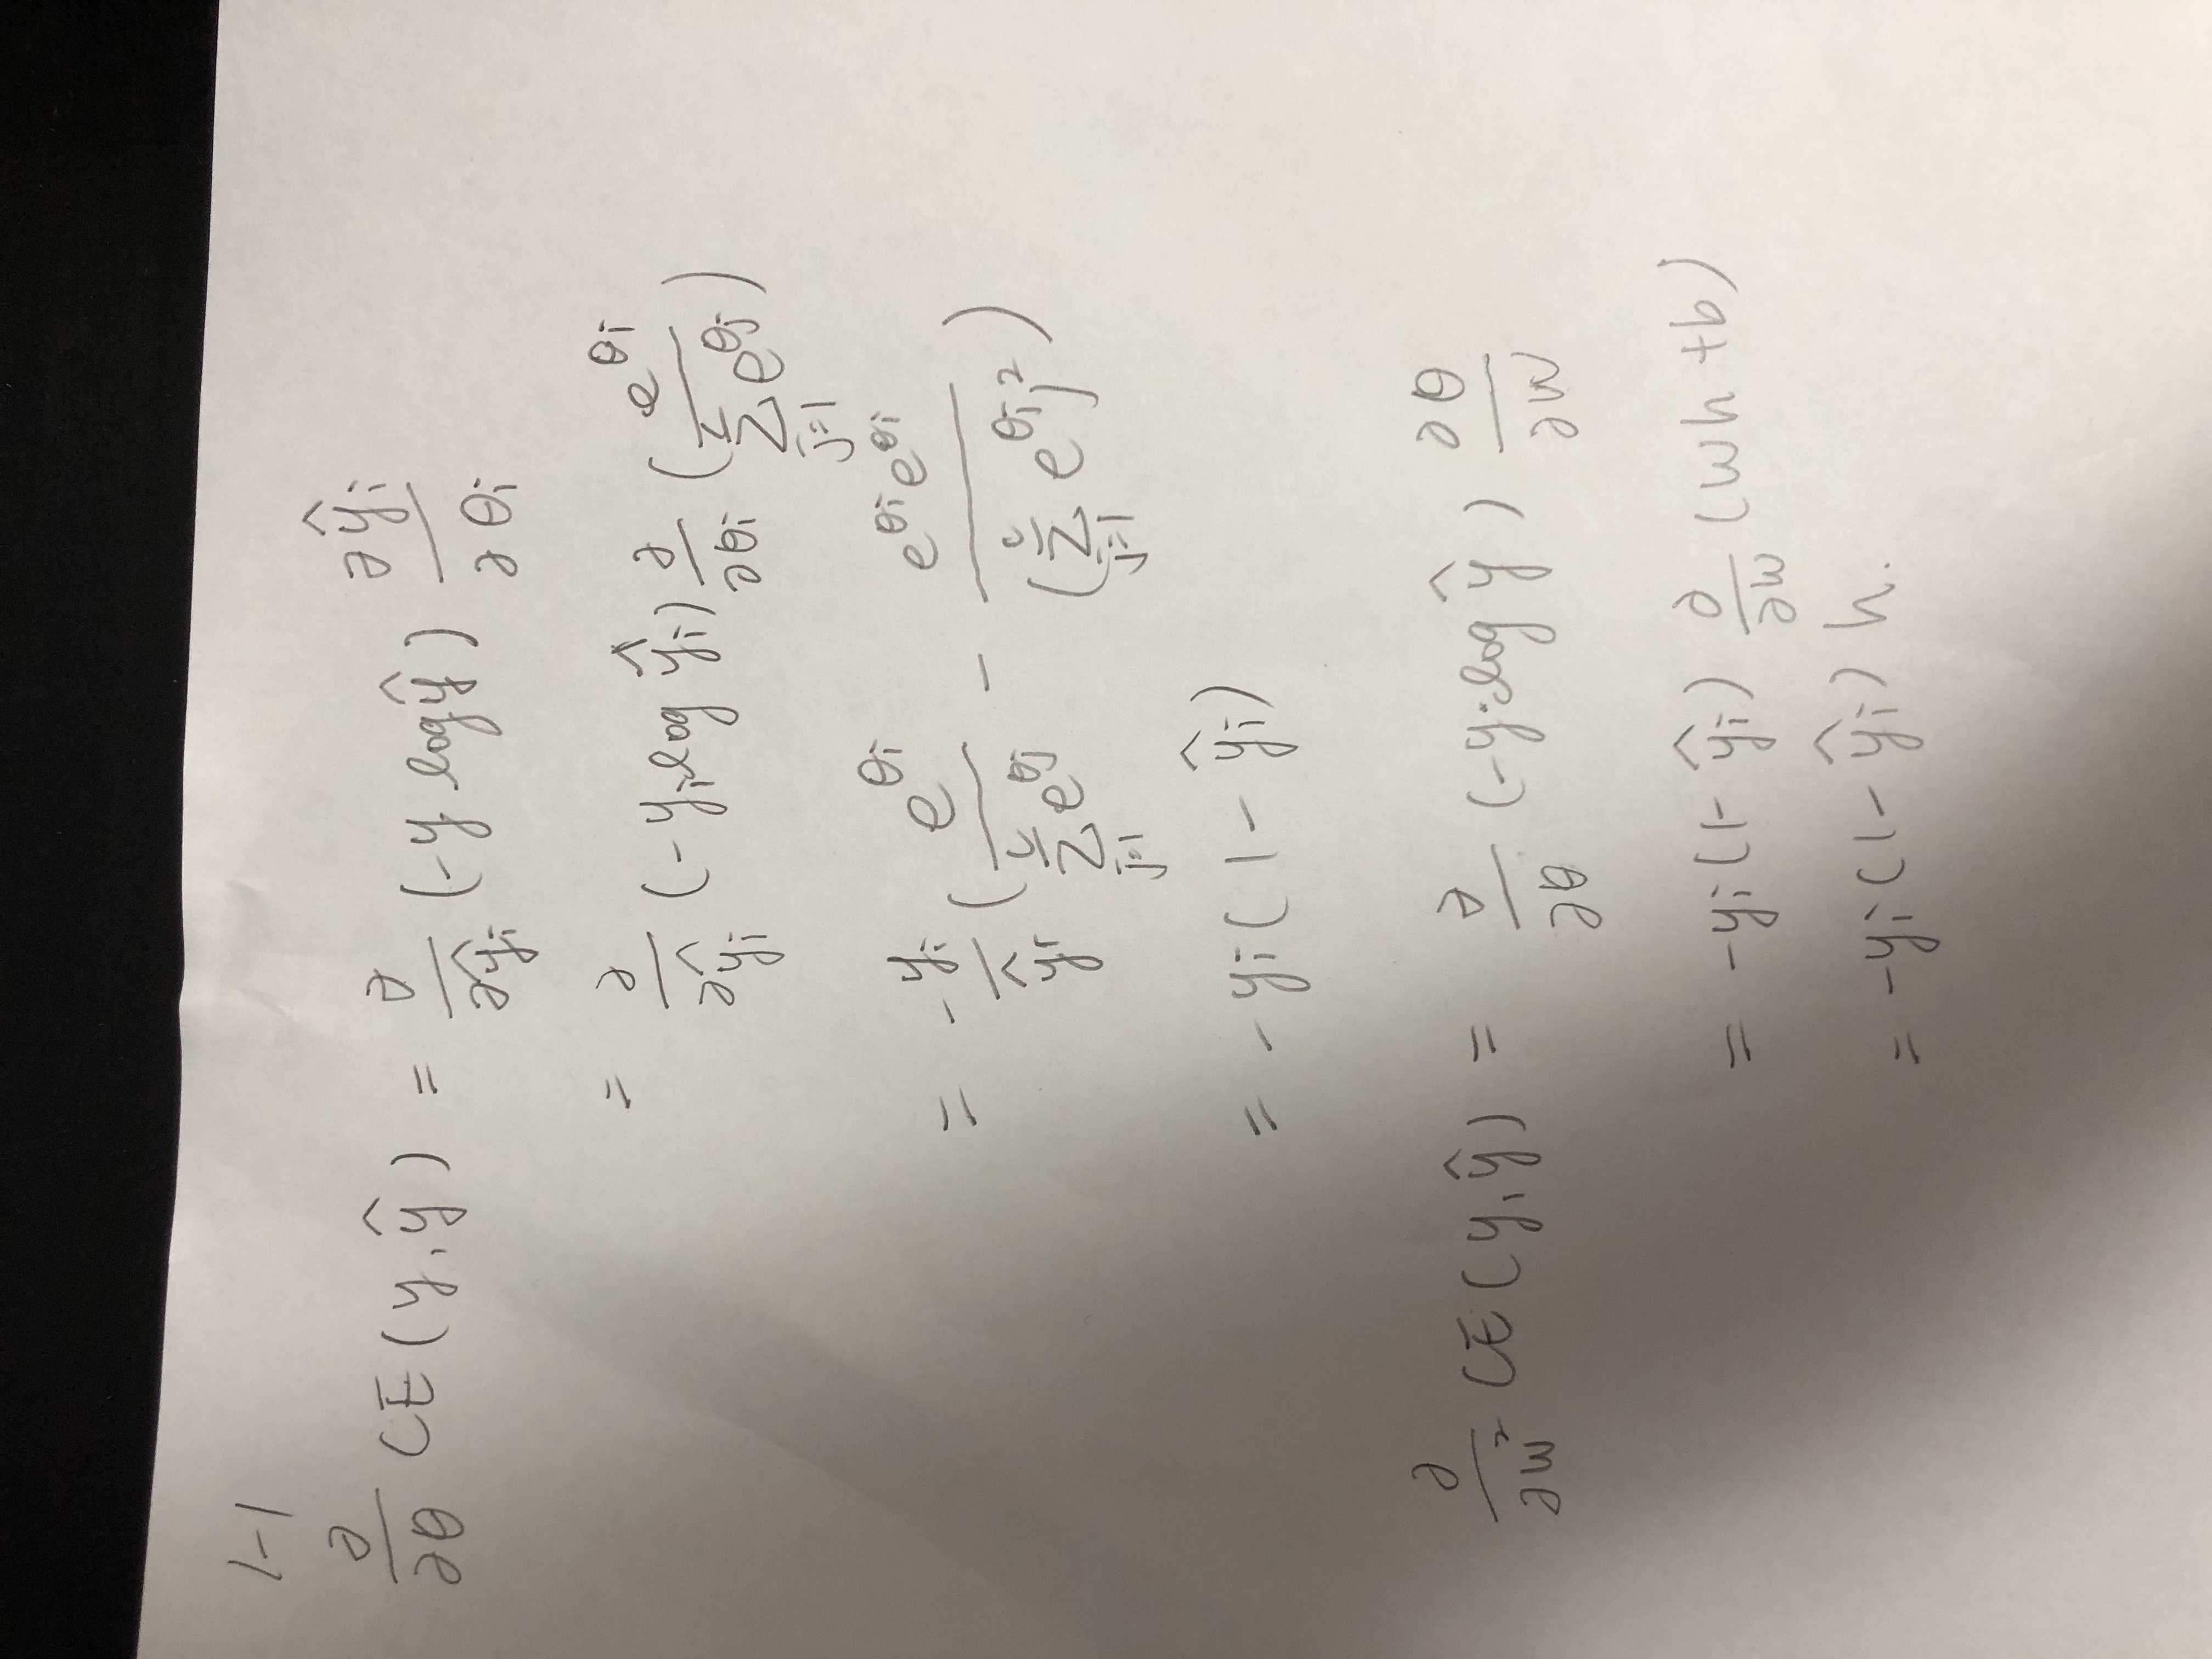 1-1
∂/∂θ CE(y, ŷ) = ∂/∂ŷᵢ (-y log ŷ) ∂ŷᵢ/∂θᵢ
= ∂/∂ŷᵢ (-yᵢ log ŷᵢ) ∂/∂θᵢ (e^θᵢ / Σ_{j=1}^c e^θⱼ)
= -yᵢ/ŷᵢ (e^θᵢ / Σ_{j=1}^c e^θⱼ - e^θᵢ e^θᵢ / (Σ_{j=1}^c e^θⱼ)²)
= -yᵢ(1-ŷᵢ)
∂/∂W² CE(y, ŷ) = ∂/∂θ (-y·log ŷ) ∂θ/∂W
= -yᵢ(1-ŷᵢ) ∂/∂W (Wh+b)
= -yᵢ(1-ŷᵢ) h.